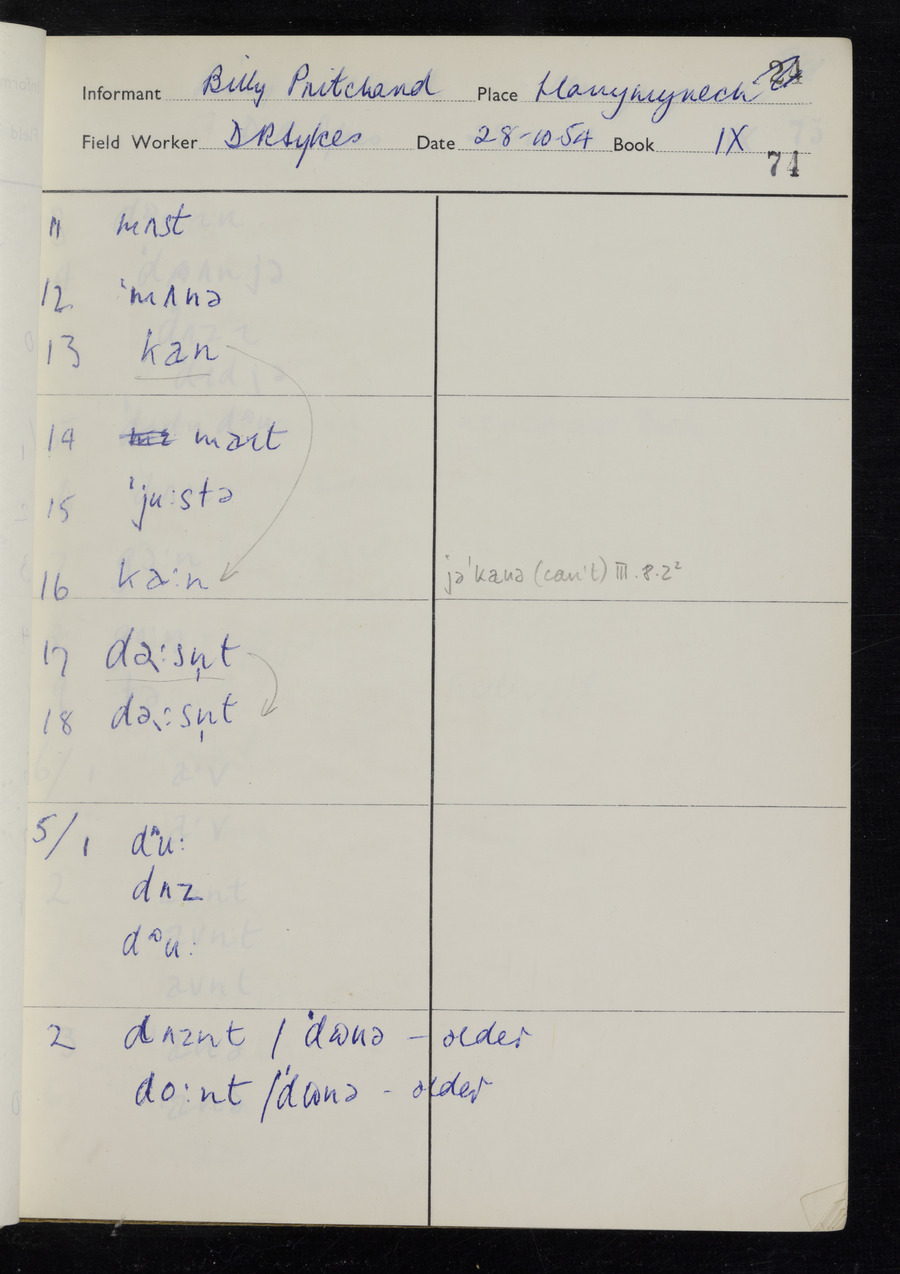 Informant Billy Pritchard Place Llanymynech 24
Field Worker D R Sykes Date 28-10-54 Book IX
74
11 mʌst
12 ˈmʌnə
13 kan
14 maɪt
15 ˈjuːstə
16 kaːn jəˈkanə (can't) III.8.2²
17 daːsn̩t
18 daːsn̩t
5/1 dᶺuː
dʌz
dᵊuː
2 dʌznt / ˈdɷnə – older
doːnt / ˈdɷnə - older